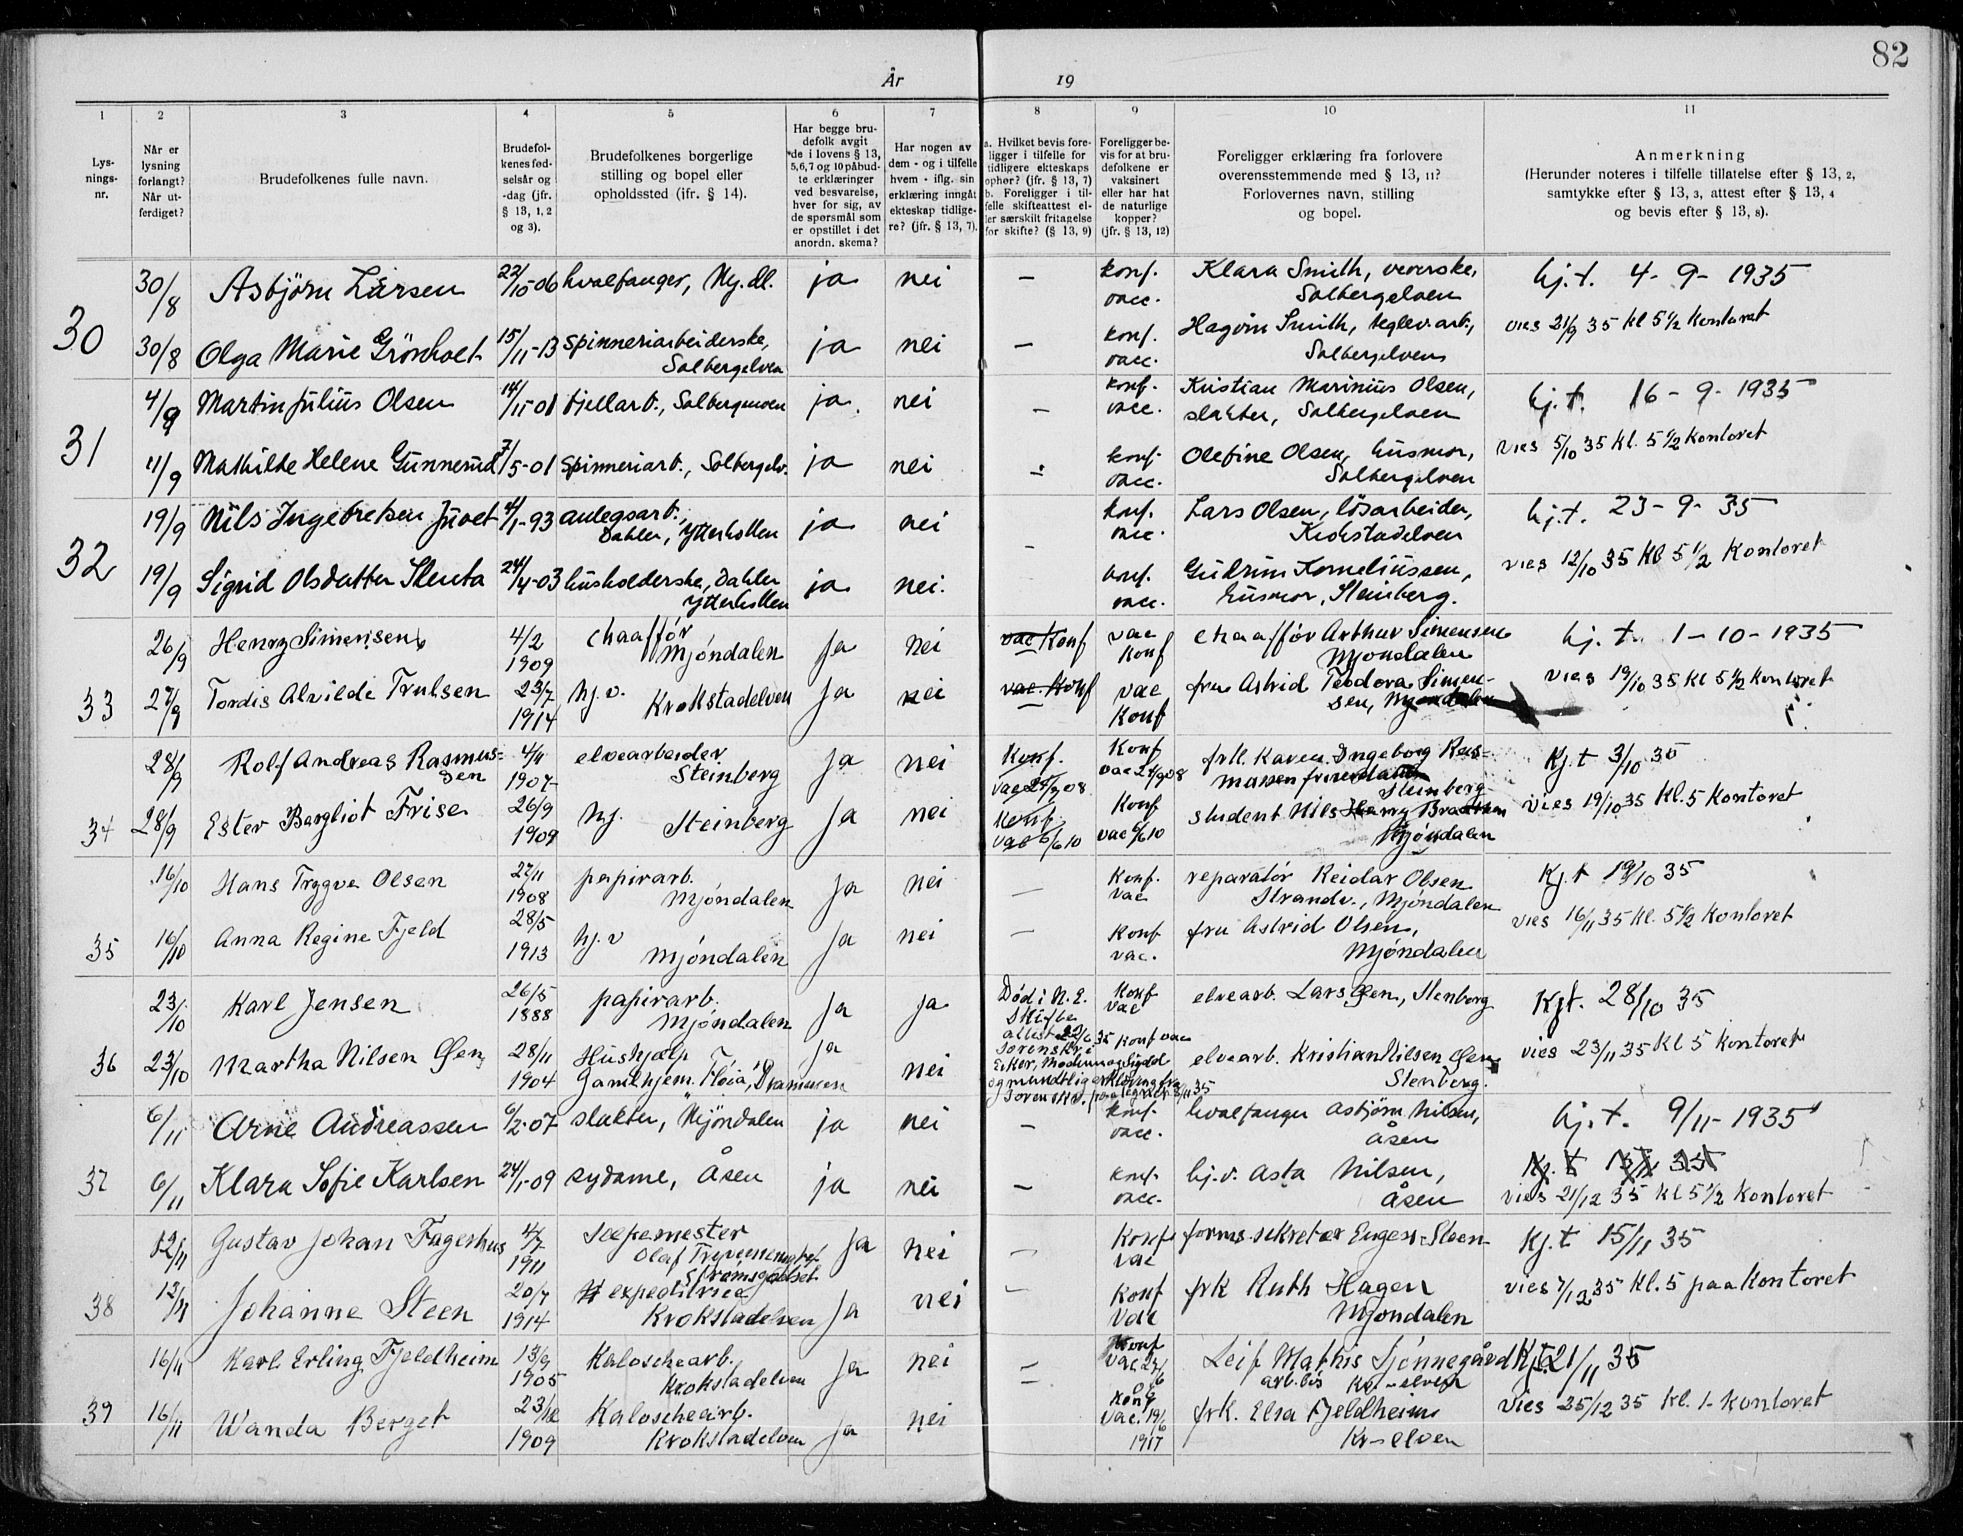 82
År 19
1 2 3 4 5 6 7 8 9 10 11
Lys-
nings-
nr.
Når er
lysning
forlangt?
Når ut-
ferdiget?
Brudefolkenes fulle navn.
Brudefol-
kenes fød-
selsår og
-dag (jfr.
§ 13, 1, 2
og 3).
Brudefolkenes borgerlige
stilling og bopel eller
opholdssted (ifr. § 14).
Har begge bru-
defolk avgit
de i lovens § 13,
5,6,7 og 10 påbud-
te erklæringer
ved besvarelse,
hver for sig, av
de spørsmål som
er opstillet i det
anordn. skema?
Har nogen av
dem - og i tilfelle
hvem - iflg. sin
erklæring inngåt
ekteskap tidlige-
re? (jfr. § 13, 7).
a. Hvilket bevis fore-
ligger i tilfelle for
tidligere ekteskaps
ophør? (jfr. § 13, 7)
b. Foreligger i til-
felle skifteattest el-
ler særskilt fritagelse
for skifte? (§ 13, 9)
Foreligger be-
vis for at bru-
defolkene er
vaksinert
eller har hat
de naturlige
kopper?
(jfr. § 13, 12)
Foreligger erklæring fra forlovere
overensstemmende med § 13, 11?
Forlovernes navn, stilling
og bopel.
Anmerkning
(Herunder noteres i tilfelle tillatelse efter § 13, 2,
samtykke efter § 13, 3, attest efter § 13, 4
og bevis efter § 13, 8).
30
30/8 Asbjörn Larsen 22/10-06 hvalfanger, Mj.dl. ja nei — konf. vacc. Klara Smith, veverske, Solbergelven kj.t. 4-9-1935
30/8 Olga Marie Grönholt 15/11-13 spinneriarbeiderske, Solbergelven ja nei — konf. vacc. Hagvin Smith, teglev.arb., Solbergelven vies 21/9 35 kl 5 1/2 Kontoret
31
4/9 Martin Julius Olsen 14/11-01 fjellarb., Solbergelven ja nei — konf. vacc. Kristian Marinius Olsen, slakter, Solbergelven kj.t. 16-9-1935
4/9 Mathilde Helene Gunnerud 7/5-01 spinneriarb., Solbergelv. ja nei — konf. vacc. Olefine Olsen, husmor, Solbergelven vies 5/10 35 kl. 5 1/2 Kontoret
32
19/9 Nils Ingebretsen Juvet 4/1-93 anlegsarb., Dahler, Ytterkollen ja nei — konf. vacc. Lars Olsen, lösarbeider, Krokstadelven kj.t. 23-9-35
19/9 Sigrid Olsdatter Slenta 24/4-03 husholderske, Dahler Ytterkollen ja nei. konf. vacc. Gudrun Korneliussen, husmor, Steinberg. vies 12/10 35 kl 5 1/2 Kontoret
33
26/9 Henry Simensen 4/2 1909 chaafför Mjöndalen Ja nei vac Konf vac Konf chaafför Arthur Simensen Mjondalen kj.t. 1-10-1935
27/9 Tordis Alvilde Trulsen 23/7 1914 hj.v. Krokstadelven Ja nei vac. Konf vac Konf fru Astrid Teodora Simensen, Mjøndalen vies 19/10 35 kl 5 1/2 kontoret
34
28/9 Rolf Andreas Rasmus-sen 4/11 1907 elvearbeider Steinberg Ja nei Konf. Konf frk. Karen Ingeborg Ras=mussen Steinberg Kj.t 3/10 35
28/9 Ester Bergliot Frise 26/9 1909 hj. Steinberg Ja nei Konf. vac 6/6 10 Konf vac 6/6 10 student Nils Henry Mjöndalen vies 19/10 35 Kl. 5 Kontoret
35
16/10 Hans Trygve Olsen 27/11 1908 papirarb. Mjöndalen Ja nei — Konf. vac reparatör Reidar Olsen Strandv., Mjöndalen Kj.t 19/10 35
16/10 Anna Regine Fjeld 28/5 1913 hj.v Mjöndalen Ja nei — Konf vac. fru Astrid Olsen, Mjöndalen vies 16/11 35 kl. 5 1/2 kontoret
36
23/10 Karl Jensen 26/5 1888 papirarb. Mjöndalen Ja Ja Död i N.E. Skifte attest 22/6 35 Konf vac elvearb. Lars Øen, Stenberg Kjt. 28/10 35
23/10 Martha Nilsen Øen 28/11 1904 Hushjælp Gamlehjem. Fløia, Drammen Ja nei Sorenskr. i Eiker, Modum og Sigdal og mundtlig erklæring fra Sorenskr. Konf vac elvearb. Kristian Nilsen Øen, Stenberg. vies 23/11 35 kl 5 Kontoret
37
6/11 Arne Andreassen 6/2-07 slakter, Mjöndalen ja nei — konf. vacc. hvalfanger Asbjörn Nilsen, Åsen kj.t. 9/11-1935
6/11 Klara Sofie Karlsen 24/1-09 sydame, Åsen ja nei — konf. vacc. hj.v. Asta Nilsen, Åsen vies 21/12 35 kl 5 1/2 Kontoret
38
12/11 Gustav Johan Fagerhus 4/7 1911 Sæpemester Strømsgodset Ja nei — Konf vac forms.sekretær Eugen Steen Kj.t 15/11 35
12/11 Johanne Steen 20/7 1914 expeditrice Krokstadelven Ja nei — Konf vac frk Ruth Hagen Mjondalen vies 7/12 35 Kl. 5 paa Kontoret
39
16/11 Karl Erling Fjeldheim 13/9 1905 Kaloschearb. Krokstadelven Ja nei — Konf vac Leif Mathis Sjönnegård arb.bis Kr-elven Kj.t 21/11 35
16/11 Wanda Berget 23/12 1909 Kaloschearb. Krokstadelven Ja nei Konf vac. 19/6 1917 frk. Elsa Fjeldheim Kr-elven vies 25/12 35 Kl. 1- kontoret